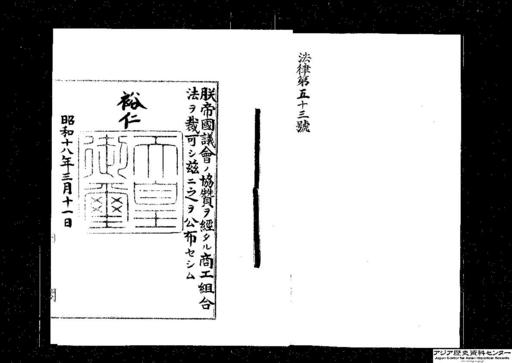 法律第五十三號
朕帝國議會ノ協贊ヲ經タル商工組合
法ヲ裁可シ茲ニ之ヲ公布セシム
裕仁
天皇
御璽
昭和十八年三月十一日
アジア歴史資料センター
Japan Center for Asian Historical Records